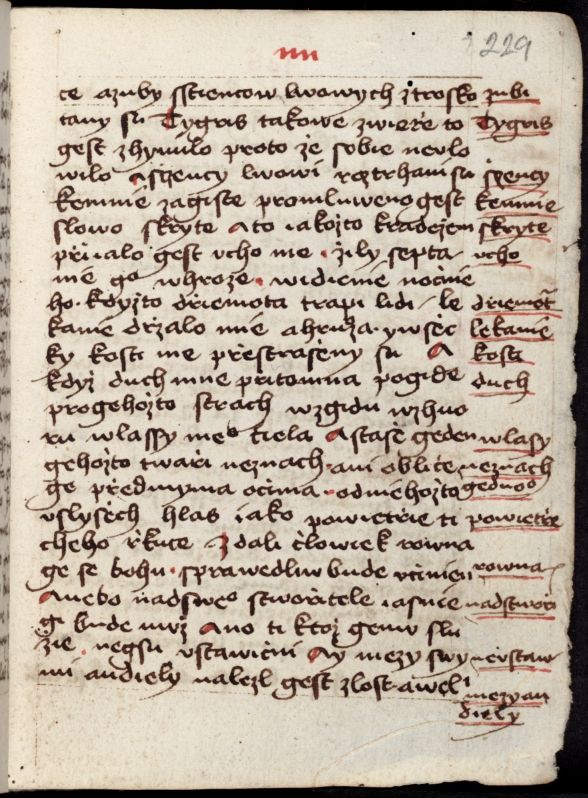 IIII
229
ce azuby sstiencow lwowych ztrosko
zubi
tany su Tygris takowe zwierze to
Tygris
gest zhynulo proto ze sobie nevlo
wilo a sstency lwowi roztrhani su
sstency
kemnie zagiste promluweno gest
kemnie
slowo skryte Ato iakozto kradezem
skryte
prijalo gest vcho me · zily septa
vcho
nie ge° whroze · widienie nocnie
ho · kdyzto driemota trapi lidi le
driemot
kanie drzalo mie ahruza · ywsec
lekanie
ky kosti me przestraseny su A
kosti
kdyz duch mne pritomna pogide
duch
progehozto strach wzgidu wzhuo
ru wlassy me° tiela Astase geden
wlasy
gehozto twari neznach · ani oblice
neznach
ge predmyma ocima · odniehozto
gedno°
vslysech hlas iako powietrie ti
powietrie
cheho rkuce Zdali clowiek rowna
ge se bohu · sprawedliw bude vcinen
rowna
Anebo nadswe° stworitele iasnie
nadstwori
gi bude muz Ano ti ktoz gemu slu
zie negsu vstawicni Ay mezy swy
neustaw
mi andiely nalezl gest zlost · awel
mezy an
diely